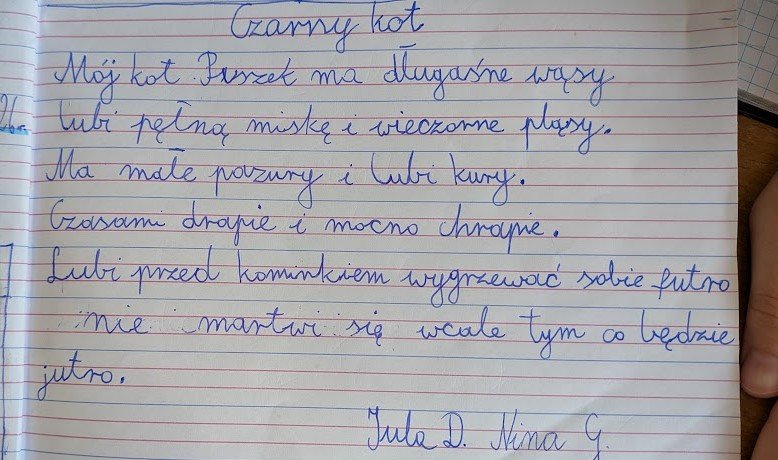 Czarny kot
Mój kot Puszek ma długaśne wąsy
lubi pełną miskę i wieczorne pląsy.
Ma małe pazury i lubi kury.
Czasami drapie i mocno chrapie.
Lubi przed kominkiem wygrzewać sobie futro
nie martwi się wcale tym co będzie
jutro.
Jula D. Nina G.